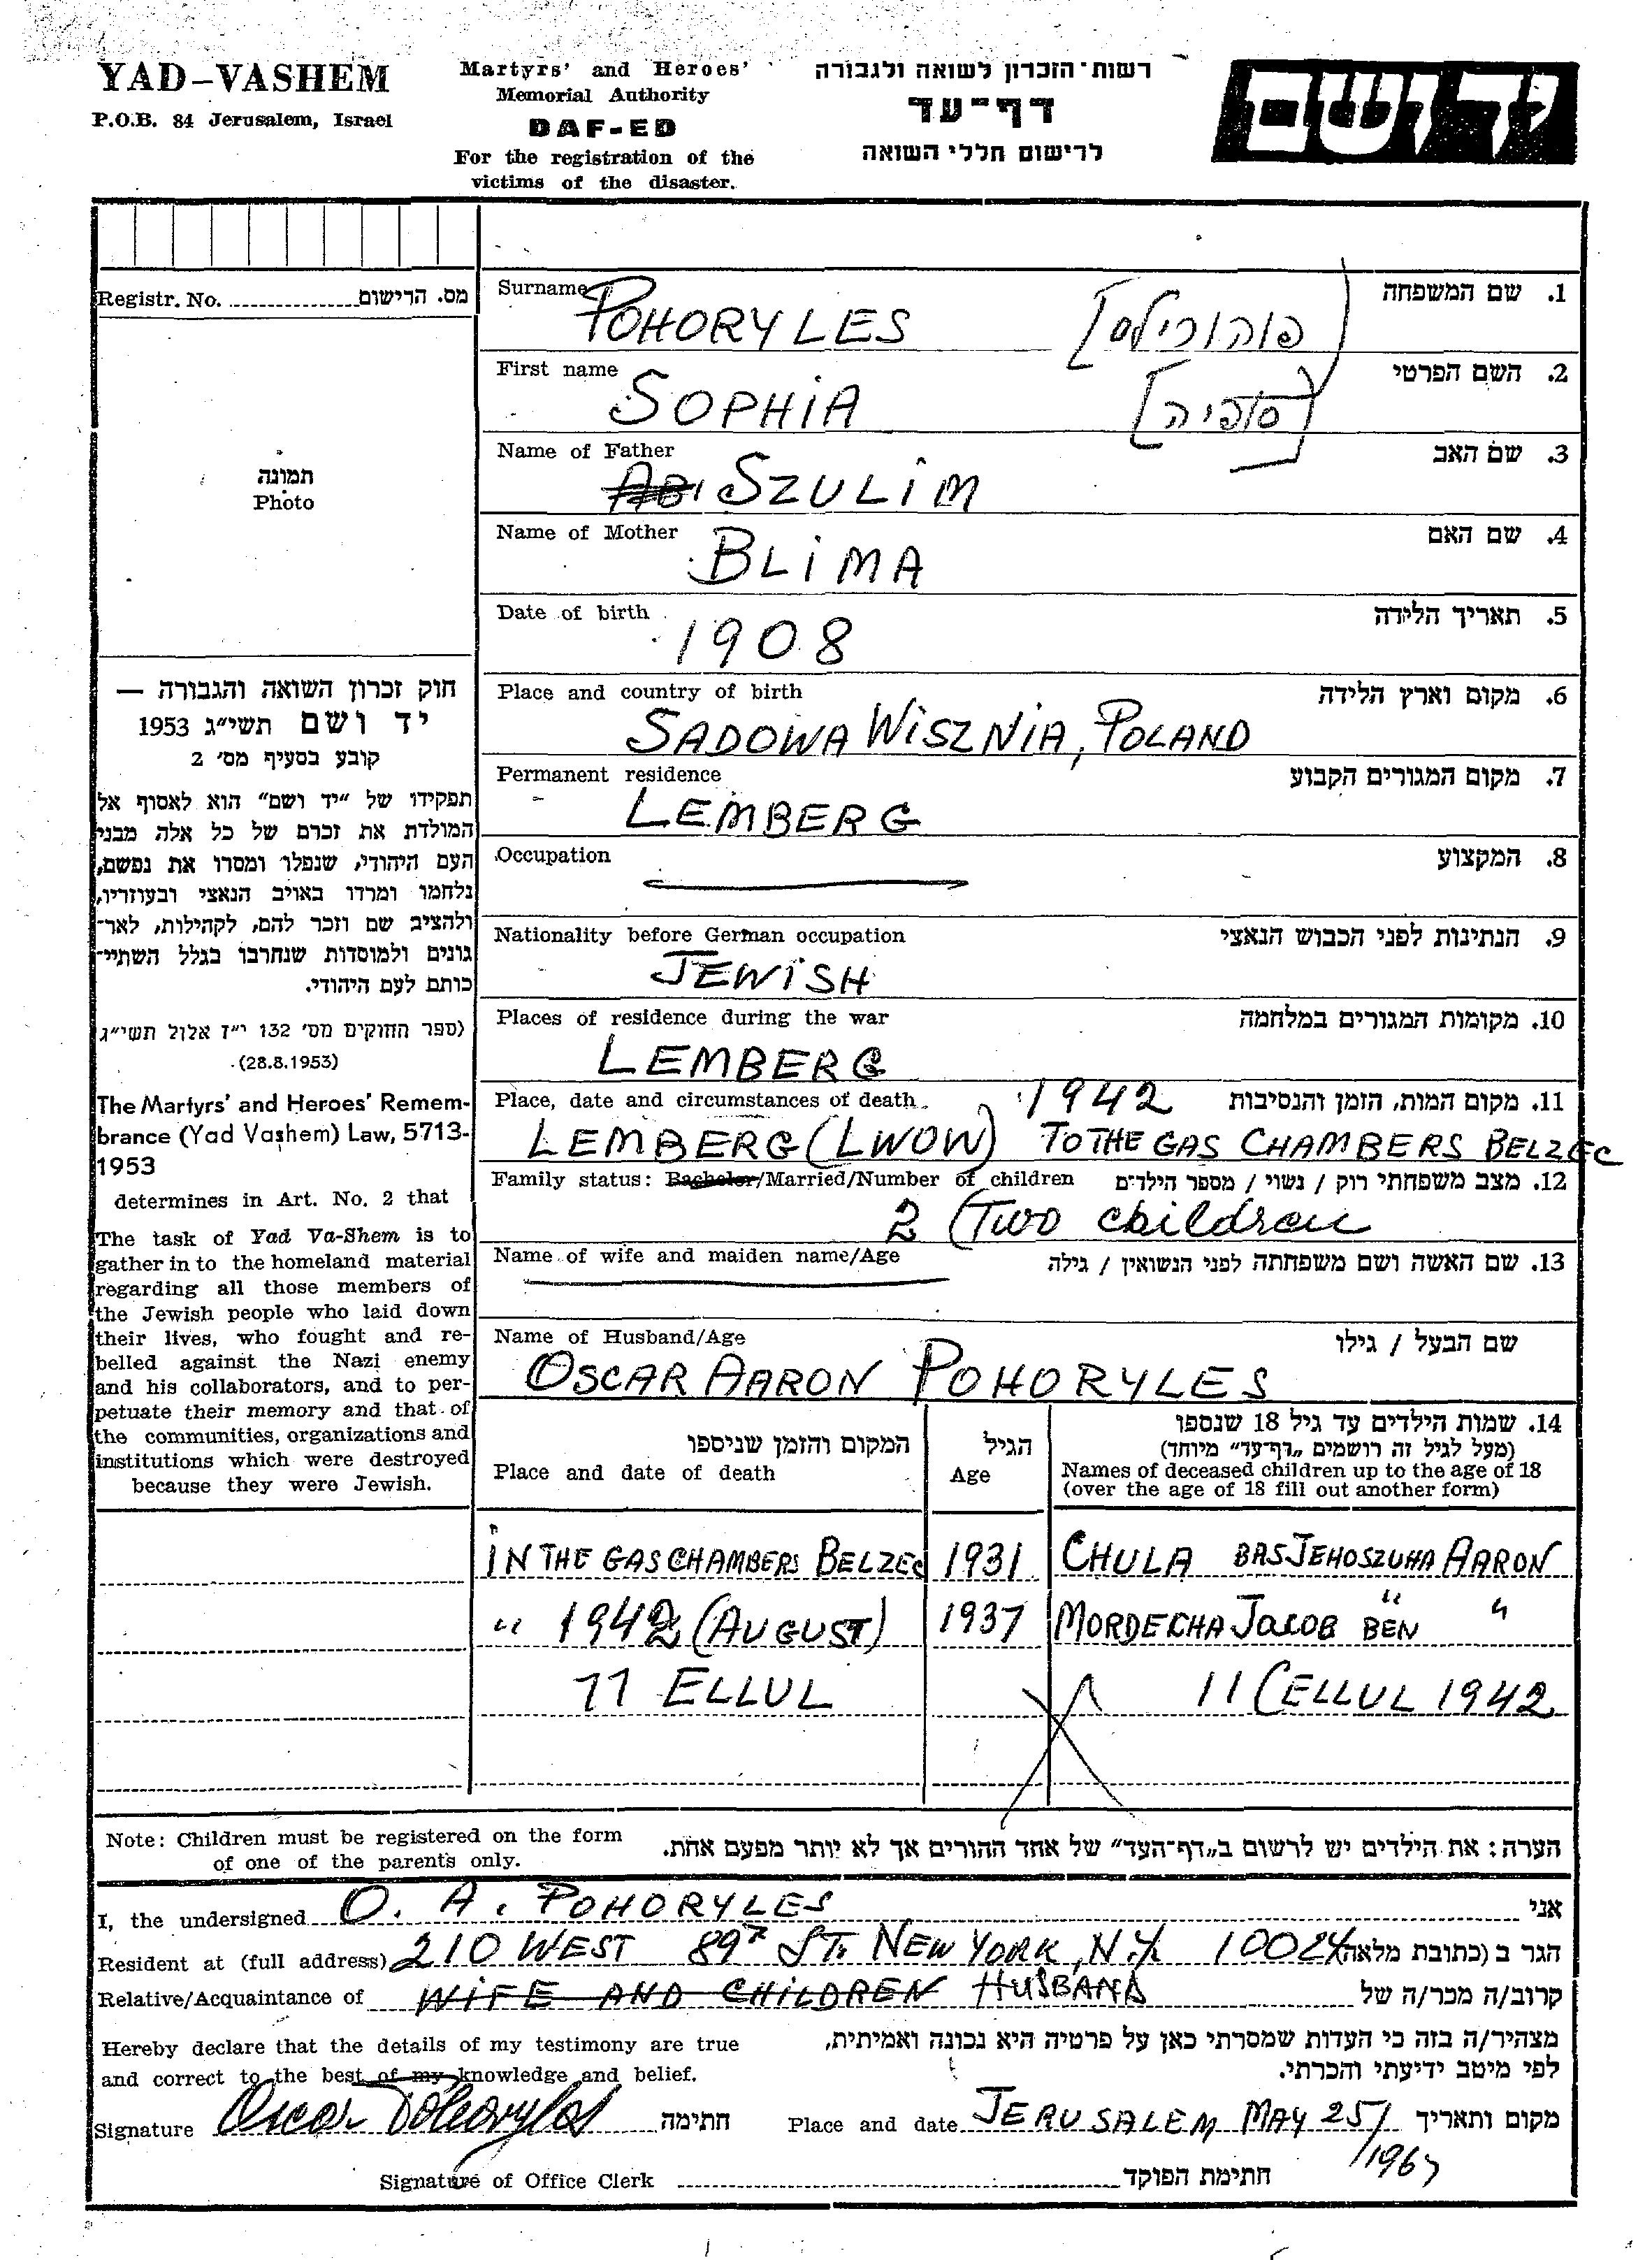 YAD-VASHEM
P.O.B. 84 Jerusalem, Israel
Martyrs' and Heroes'
Memorial Authority
DAF-ED
For the registration of the
victims of the disaster.
רשות-הזכרון לשואה ולגבורה
דף-עד
לרישום חללי השואה
ידושם
Registr. No. מס. הרישום
תמונה
Photo
חוק זכרון השואה והגבורה —
יד ושם תשי"ג 1953
קובע בסעיף מס' 2
תפקידו של "יד ושם" הוא לאסוף אל
המולדת את זכרם של כל אלה מבני
העם היהודי, שנפלו ומסרו את נפשם,
נלחמו ומרדו באויב הנאצי ובעוזריו,
ולהציב שם וזכר להם, לקהילות, לאר-
גונים ולמוסדות שנחרבו בגלל השתיי-
כותם לעם היהודי.
(ספר החוקים מס' 132 י"ז אלול תשי"ג
(28.8.1953).
The Martyrs' and Heroes' Remem-
brance (Yad Vashem) Law, 5713-
1953
determines in Art. No. 2 that
The task of Yad Va-Shem is to
gather in to the homeland material
regarding all those members of
the Jewish people who laid down
their lives, who fought and re-
belled against the Nazi enemy
and his collaborators, and to per-
petuate their memory and that of
the communities, organizations and
institutions which were destroyed
because they were Jewish.
Surname 1. שם המשפחה
POHORYLES [פוהורילס]
First name 2. השם הפרטי
SOPHIA [סופיה]
Name of Father 3. שם האב
SZULIM
Name of Mother 4. שם האם
BLIMA
Date of birth 5. תאריך הלידה
1908
Place and country of birth 6. מקום וארץ הלידה
SADOWA WISZNIA, POLAND
Permanent residence 7. מקום המגורים הקבוע
LEMBERG
Occupation 8. המקצוע
Nationality before German occupation 9. הנתינות לפני הכבוש הנאצי
JEWISH
Places of residence during the war 10. מקומות המגורים במלחמה
LEMBERG
Place, date and circumstances of death 1942 11. מקום המות, הזמן והנסיבות
LEMBERG (LWOW) TO THE GAS CHAMBERS BELZEC
Family status: Bachelor/Married/Number of children 12. מצב משפחתי רוק / נשוי / מספר הילדים
2 (Two children
Name of wife and maiden name/Age 13. שם האשה ושם משפחתה לפני הנשואין / גילה
Name of Husband/Age שם הבעל / גילו
OSCAR AARON POHORYLES
14. שמות הילדים עד גיל 18 שנספו
(מעל לגיל זה רושמים „דף-עד" מיוחד)
Names of deceased children up to the age of 18
(over the age of 18 fill out another form)
הגיל
Age
המקום והזמן שניספו
Place and date of death
IN THE GAS CHAMBERS BELZEC 1931 CHULA BAS JEHOSZUHA AARON
" 1942 (AUGUST) 1937 MORDECHA JACOB BEN " "
11 ELLUL 11 (ELLUL 1942
Note: Children must be registered on the form
of one of the parents only.
הערה: את הילדים יש לרשום ב„דף-העד" של אחד ההורים אך לא יותר מפעם אחת.
I, the undersigned O. A. POHORYLES אני
Resident at (full address) 210 WEST 89 ST. NEW YORK, N.Y. 10024 הגר ב (כתובת מלאה)
Relative/Acquaintance of WIFE AND CHILDREN HUSBAND קרוב/ה מכר/ה של
Hereby declare that the details of my testimony are true
and correct to the best of my knowledge and belief.
מצהיר/ה בזה כי העדות שמסרתי כאן על פרטיה היא נכונה ואמיתית,
לפי מיטב ידיעתי והכרתי.
Signature Oscar Pohoryles חתימה Place and date JERUSALEM MAY 25/ מקום ותאריך
/1967
Signature of Office Clerk חתימת הפוקד